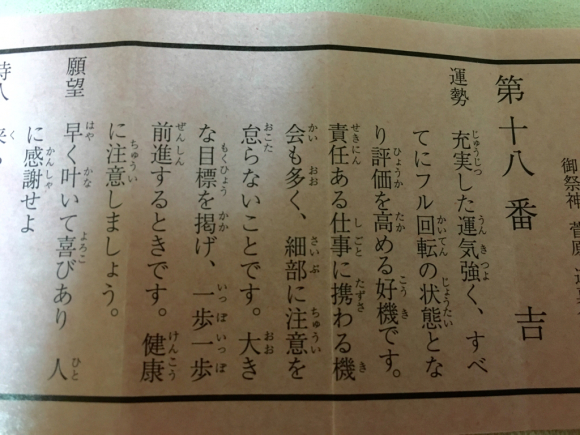 御祭神 菅原
第十八番 吉
運勢 充実した運気強く、すべ
てにフル回転の状態とな
り評価を高める好機です。
責任ある仕事に携わる機
会も多く、細部に注意を
怠らないことです。大き
な目標を掲げ、一歩一歩
前進するときです。健康
に注意しましょう。
願望 早く叶いて喜びあり 人
に感謝せよ
待人